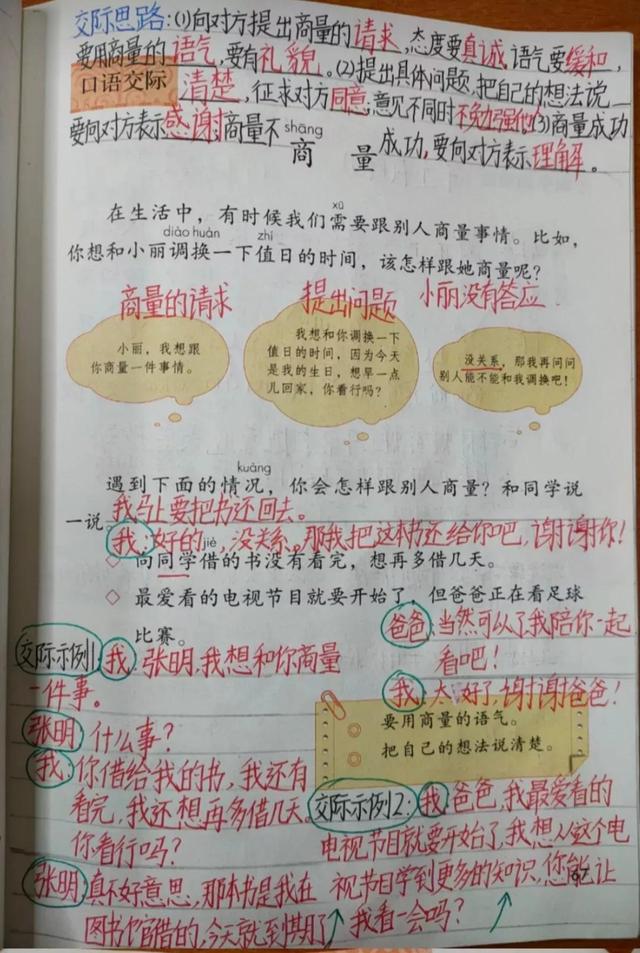 交际思路:(1)向对方提出商量的请求,态度要真诚,语气要缓和,
要用商量的语气,要有礼貌。(2)提出具体问题,把自己的想法说
口语交际
清楚,征求对方同意;意见不同时不勉强他(3)商量成功
要向对方表示感谢;商量不
shāng
商 量
成功,要向对方表示理解。
xū
在生活中,有时候我们需要跟别人商量事情。比如,
diào huàn zhí
你想和小丽调换一下值日的时间,该怎样跟她商量呢?
商量的请求 提出问题 小丽没有答应
小丽,我想跟
你商量一件事情。
我想和你调换一下
值日的时间,因为今天
是我的生日,想早一点
儿回家,你看行吗?
没关系,那我再问问
别人能不能和我调换吧!
kuàng
遇到下面的情况,你会怎样跟别人商量?和同学说
一说。
我马上要把书还回去。
我:好的,没关系。那我把这本书还给你吧,谢谢你!
jiè
◇ 向同学借的书没有看完,想再多借几天。
◇ 最爱看的电视节目就要开始了,但爸爸正在看足球
比赛。
爸爸:当然可以了,我陪你一起
看吧!
我:太好了,谢谢爸爸!
交际示例1:我:张明,我想和你商量
一件事。
张明:什么事?
我:你借给我的书,我还有
看完,我还想再多借几天
你看行吗?
张明:真不好意思,那本书是我在
图书馆借的,今天就到期了
要用商量的语气。
把自己的想法说清楚。
交际示例2:我:爸爸,我最爱看的
电视节目就要开始了,我想从这个电
视节目学到更多的知识,您能让
我看一会吗?
67